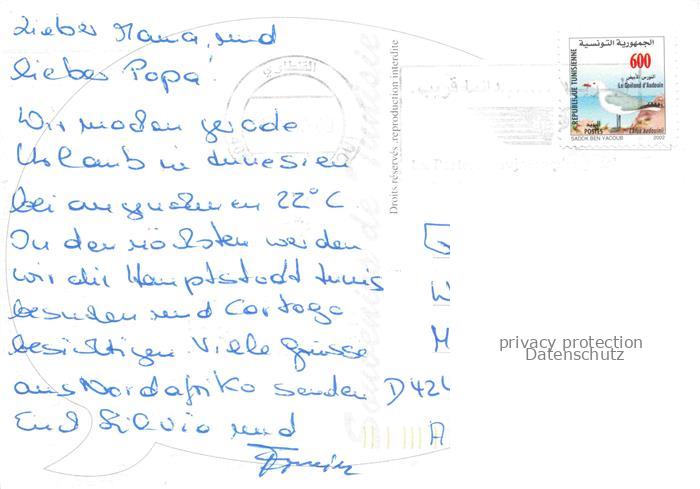 Lieber Mama, und
lieber Papa!
Wir machen gerade
Urlaub in Tunesien
bei angenehmen 22°C.
In den nächsten werden
wir die Hauptstadt Tunis
besuchen und Cartago
besichtigen. Viele Grüsse
aus Nordafrika senden
Euch Silvio und
D 424
W
M
A
Droits réservés, reproduction interdite
Souvenirs de Tunisie
الجمهورية التونسية
600
النورس الأبيض
Le Goéland d'Audouin
REPUBLIQUE TUNISIENNE
POSTES
SADOK BEN YACOUB
2002
privacy protection
Datenschutz